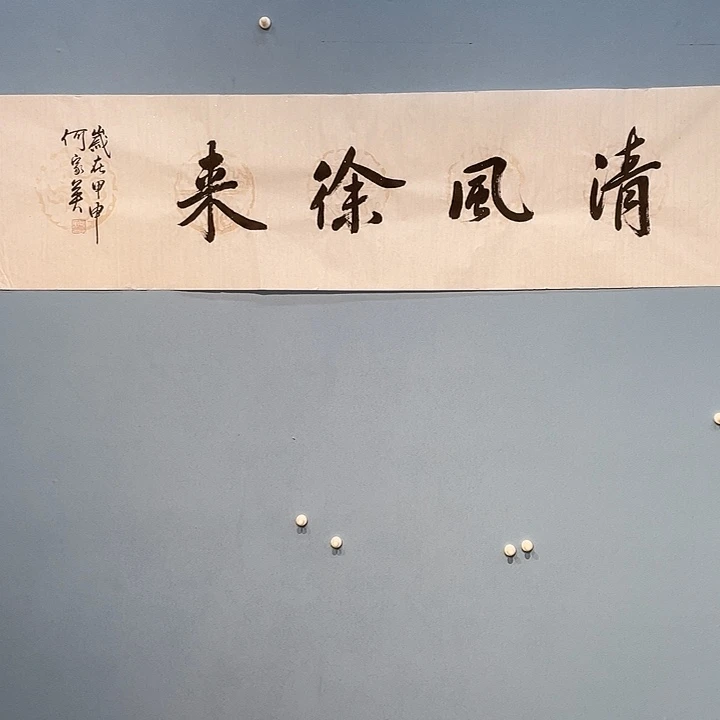 清風徐来
歲在甲申
何家英